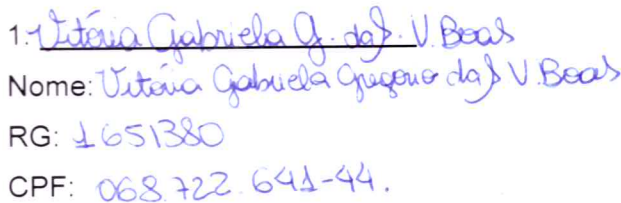 1. Vitória Gabriela G. da S. V. Boas
Nome: Vitória Gabriela Gregorio da S V. Boas
RG: 1651380
CPF: 068.722.641-44.